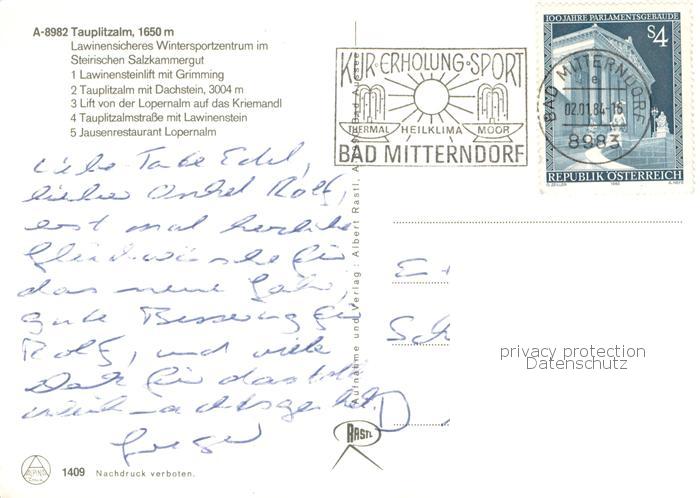 A-8982 Tauplitzalm, 1650 m
Lawinensicheres Wintersportzentrum im
Steirischen Salzkammergut
1 Lawinensteinlift mit Grimming
2 Tauplitzalm mit Dachstein, 3004 m
3 Lift von der Lopernalm auf das Kriemandl
4 Tauplitzalmstraße mit Lawinenstein
5 Jausenrestaurant Lopernalm
KUR·ERHOLUNG·SPORT
THERMAL HEILKLIMA MOOR
BAD MITTERNDORF
100 JAHRE PARLAMENTSGEBÄUDE
S4
BAD MITTERNDORF
e
02.01.84-16
8983
REPUBLIK ÖSTERREICH
Liebe Tante Edel,
lieber Onkel Rolf,
erst mal herzliche
Glückwünsche für
das neue Jahr,
gute Besserung für
Rolf, und viele
Dank für das
Aufnahme und Verlag: Albert Rastl, Bad Aussee
E
Sch
D
privacy protection
Datenschutz
RASTL
1409 Nachdruck verboten.